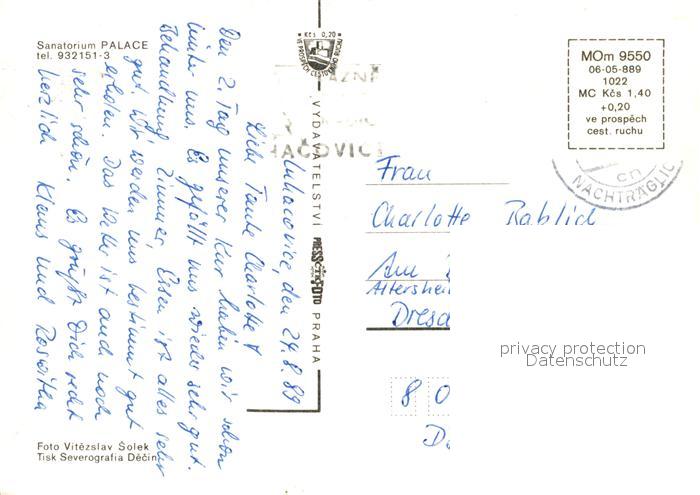 Sanatorium PALACE
tel. 932151-3
Luhačovice, den 24.8.89
Liebe Tante Charlotte!
Den 2. Tag unserer Kur haben wir schon
hinter uns. Es gefällt uns wieder sehr gut.
Behandlung, Zimmer, Essen ist alles sehr
gut. Wir werden uns bestimmt gut
erholen. Das Wetter ist auch noch
sehr schön. Es grüßt Dich recht
herzlich Klaus und Roswitha
Foto Vítězslav Šolek
Tisk Severografia Děčín
Kčs 0,20
VE PROSPĚCH CESTOVNÍHO RUCHU
VYDAVATELSTVÍ PRESSFOTO PRAHA
HAČOVICE
MOm 9550
06-05-889
1022
MC Kčs 1,40
+0,20
ve prospěch
cest. ruchu
NACHTRÄGLIC
Frau
Charlotte Rablich
Am
Altershei
Dresd
8 0
privacy protection
Datenschutz